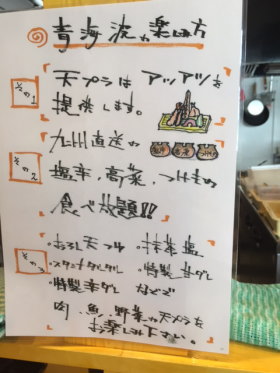 青海波の楽しみ方
その1
天プラは アツアツを
提供します。
その2
九州直送の
塩辛、高菜、つけもの
食べ放題!!
その3
・おろし天つゆ ・抹茶塩
・スタンダードダレ ・特製 辛ダレ
・特製 などで
肉、魚、野菜の天プラを
お楽しみ下さい。